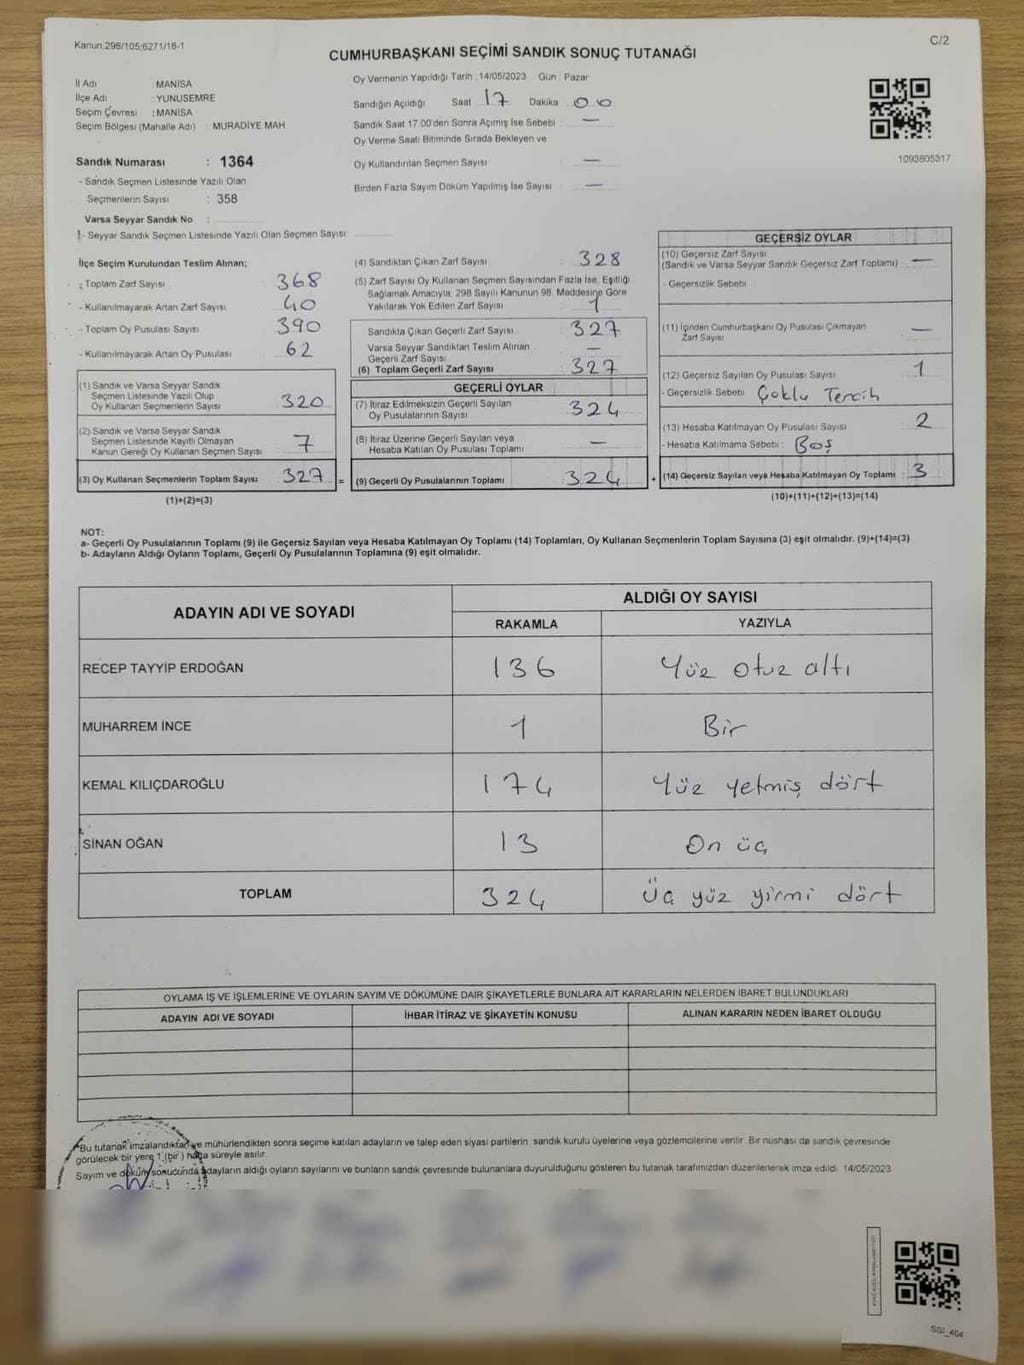 Kanun:298/105;6271/16-1
C/2
CUMHURBAŞKANI SEÇİMİ SANDIK SONUÇ TUTANAĞI
İl Adı : MANİSA
İlçe Adı : YUNUSEMRE
Seçim Çevresi : MANİSA
Seçim Bölgesi (Mahalle Adı) : MURADİYE MAH.
Oy Vermenin Yapıldığı Tarih : 14/05/2023 Gün : Pazar
Sandığın Açıldığı Saat 17 Dakika 00
Sandık Saat 17:00'den Sonra Açımış İse Sebebi : —
Oy Verme Saati Bitiminde Sırada Bekleyen ve
Oy Kullandırılan Seçmen Sayısı : —
Birden Fazla Sayım Döküm Yapılmış İse Sayısı : —
1093805317
Sandık Numarası : 1364
- Sandık Seçmen Listesinde Yazılı Olan
Seçmenlerin Sayısı : 358
Varsa Seyyar Sandık No :
- Seyyar Sandık Seçmen Listesinde Yazılı Olan Seçmen Sayısı:
İlçe Seçim Kurulundan Teslim Alınan;
- Toplam Zarf Sayısı : 368
- Kullanılmayarak Artan Zarf Sayısı : 40
- Toplam Oy Pusulası Sayısı : 390
- Kullanılmayarak Artan Oy Pusulası : 62
(1) Sandık ve Varsa Seyyar Sandık
Seçmen Listesinde Yazılı Olup
Oy Kullanan Seçmenlerin Sayısı : 320
(2) Sandık ve Varsa Seyyar Sandık
Seçmen Listesinde Kayıtlı Olmayan
Kanun Gereği Oy Kullanan Seçmen Sayısı : 7
(3) Oy Kullanan Seçmenlerin Toplam Sayısı : 327 =
(1)+(2)=(3)
(4) Sandıktan Çıkan Zarf Sayısı : 328
(5) Zarf Sayısı Oy Kullanan Seçmen Sayısından Fazla İse, Eşitliği
Sağlamak Amacıyla; 298 Sayılı Kanunun 98. Maddesine Göre
Yakılarak Yok Edilen Zarf Sayısı : 1
Sandıkta Çıkan Geçerli Zarf Sayısı : 327
Varsa Seyyar Sandıktan Teslim Alınan
Geçerli Zarf Sayısı : —
(6) Toplam Geçerli Zarf Sayısı : 327
GEÇERLİ OYLAR
(7) İtiraz Edilmeksizin Geçerli Sayılan
Oy Pusulalarının Sayısı : 324
(8) İtiraz Üzerine Geçerli Sayılan veya
Hesaba Katılan Oy Pusulası Toplamı : —
(9) Geçerli Oy Pusulalarının Toplamı : 324 +
GEÇERSİZ OYLAR
(10) Geçersiz Zarf Sayısı
(Sandık ve Varsa Seyyar Sandık Geçersiz Zarf Toplamı) : —
- Geçersizlik Sebebi :
(11) İçinden Cumhurbaşkanı Oy Pusulası Çıkmayan
Zarf Sayısı : —
(12) Geçersiz Sayılan Oy Pusulası Sayısı : 1
- Geçersizlik Sebebi : Çoklu Tercih
(13) Hesaba Katılmayan Oy Pusulası Sayısı : 2
- Hesaba Katılmama Sebebi : Boş
(14) Geçersiz Sayılan veya Hesaba Katılmayan Oy Toplamı : 3
(10)+(11)+(12)+(13)=(14)
NOT:
a- Geçerli Oy Pusulalarının Toplamı (9) ile Geçersiz Sayılan veya Hesaba Katılmayan Oy Toplamı (14) Toplamları, Oy Kullanan Seçmenlerin Toplam Sayısına (3) eşit olmalıdır. (9)+(14)=(3)
b- Adayların Aldığı Oyların Toplamı, Geçerli Oy Pusulalarının Toplamına (9) eşit olmalıdır.
ADAYIN ADI VE SOYADI
ALDIĞI OY SAYISI
RAKAMLA YAZIYLA
RECEP TAYYİP ERDOĞAN 136 Yüz otuz altı
MUHARREM İNCE 1 Bir
KEMAL KILIÇDAROĞLU 174 Yüz yetmiş dört
SİNAN OĞAN 13 On üç
TOPLAM 324 Üç yüz yirmi dört
OYLAMA İŞ VE İŞLEMLERİNE VE OYLARIN SAYIM VE DÖKÜMÜNE DAİR ŞİKAYETLERLE BUNLARA AİT KARARLARIN NELERDEN İBARET BULUNDUKLARI
ADAYIN ADI VE SOYADI İHBAR İTİRAZ VE ŞİKAYETİN KONUSU ALINAN KARARIN NEDEN İBARET OLDUĞU
Bu tutanak imzalandıktan ve mühürlendikten sonra seçime katılan adayların ve talep eden siyasi partilerin sandık kurulu üyelerine veya gözlemcilerine verilir. Bir nüshası da sandık çevresinde
görülecek bir yere 1 (bir) hafta süreyle asılır.
Sayım ve döküm sonucunda adayların aldığı oyların sayılarını ve bunların sandık çevresinde bulunanlara duyurulduğunu gösteren bu tutanak tarafımızdan düzenlenerek imza edildi. 14/05/2023
SSI_404